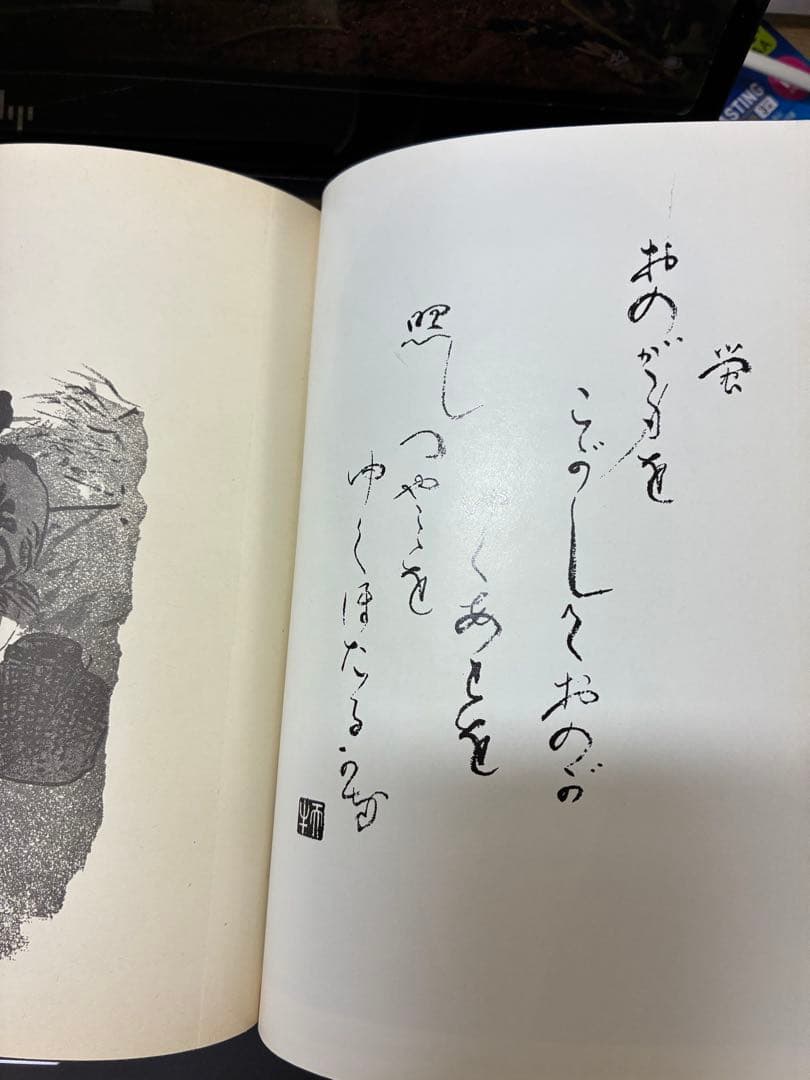 螢
おのが身を
こがしておのが
ゆくあとを
照しつやみを
ゆくほたるかも
STING